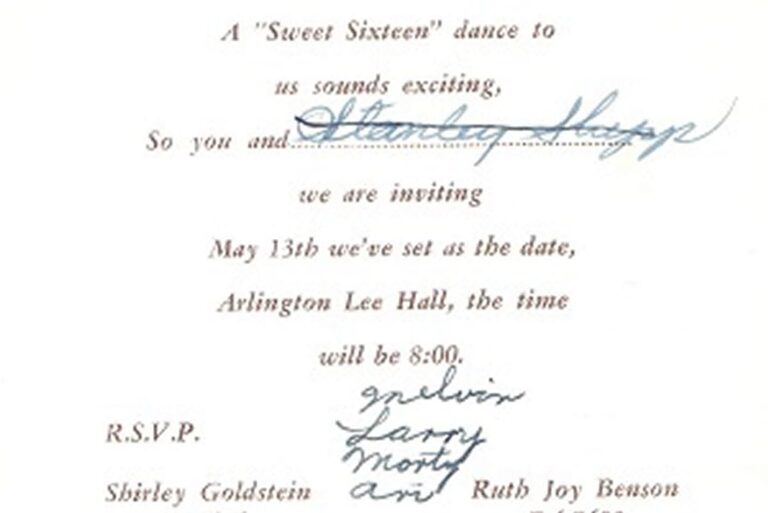 A "Sweet Sixteen" dance to
us sounds exciting,
So you and Stanley Shupp
we are inviting
May 13th we've set as the date,
Arlington Lee Hall, the time
will be 8:00.
Melvin
R.S.V.P. Larry
Morty
Shirley Goldstein Ari Ruth Joy Benson